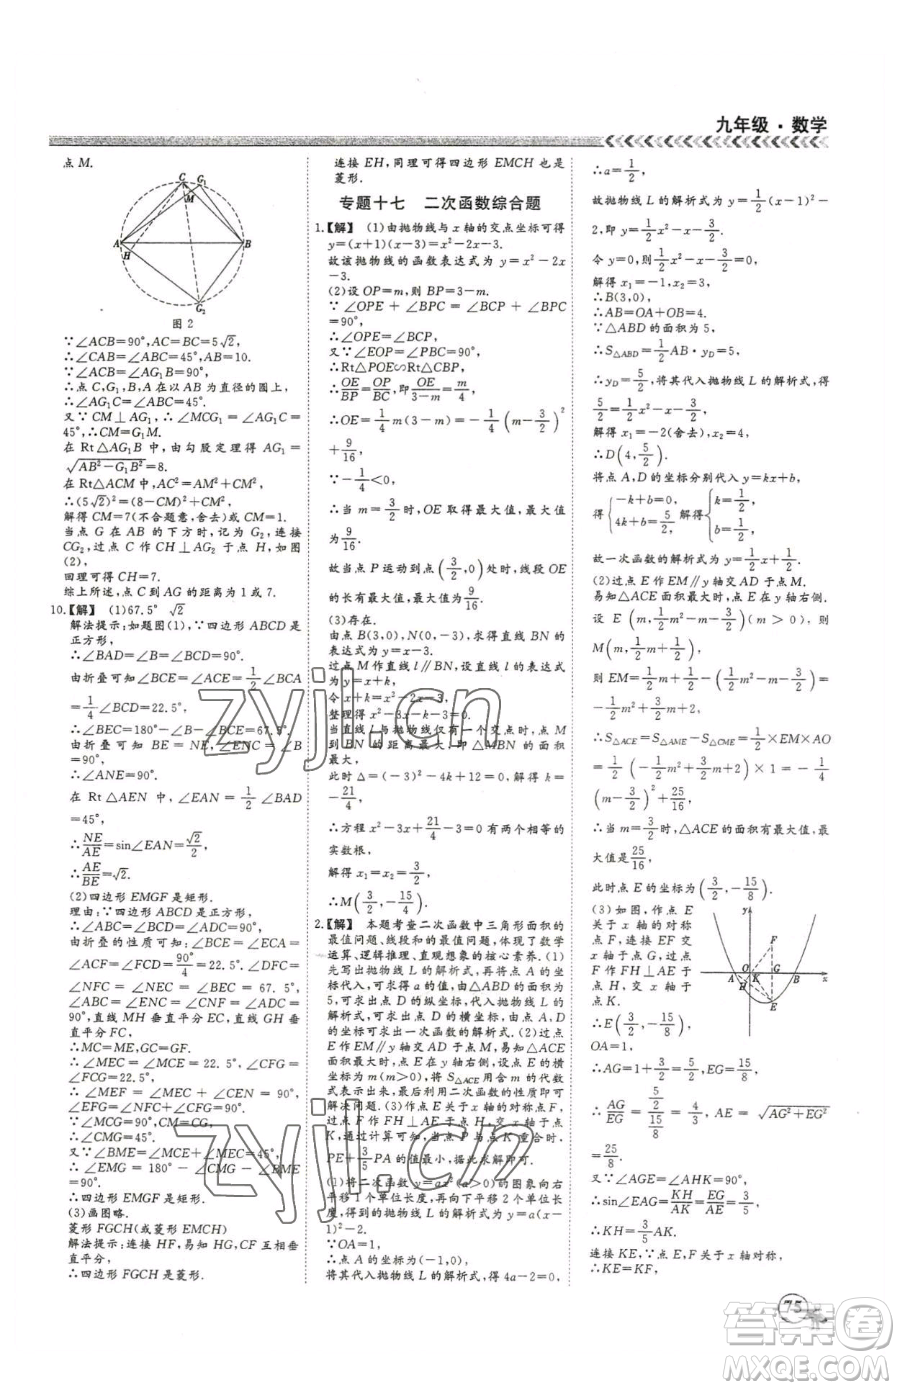 九年级·数学
点 M.
C
G₁
M
A
H
B
G₂
图 2
∵∠ACB=90°,AC=BC=5√2,
∴∠CAB=∠ABC=45°,AB=10.
∵∠ACB=∠AG₁B=90°,
∴点 C,G₁,A,B 在以 AB 为直径的圆上,
∴∠AG₁C=∠ABC=45°.
又∵CM⊥AG₁,∴∠MCG₁=∠AG₁C=
45°,∴CM=G₁M.
在 Rt△AG₁B 中,由勾股定理得 AG₁=
√(AB²-G₁B²)=8.
在 Rt△ACM 中,AC²=AM²+CM²,
∴(5√2)²=(8-CM)²+CM²,
解得 CM=7(不合题意,舍去)或 CM=1.
当点 G 在 AB 的下方时,记为 G₂,连接
CG₂,过点 C 作 CH⊥AG₂ 于点 H,如图
(2),
同理可得 CH=7.
综上所述,点 C 到 AG 的距离为 1 或 7.
10.【解】(1)67.5° √2
解法提示:如题图(1),∵四边形 ABCD 是
正方形,
∴∠BAD=∠B=∠BCD=90°.
由折叠可知∠BCE=∠ACE=1/2∠BCA
=1/4∠BCD=22.5°,
∴∠BEC=180°-∠B-∠BCE=67.5°.
由折叠可知 BE=NE,∠ENC=∠B=
90°,
∴∠ANE=90°.
在 Rt△AEN 中,∠EAN=1/2∠BAD
=45°,
∴NE/AE=sin∠EAN=√2/2,
∴AE/BE=√2.
(2)四边形 EMGF 是矩形.
理由:∵四边形 ABCD 是正方形,
∴∠B=∠BCD=∠D=90°.
由折叠的性质可知,∠BCE=∠ECA=
∠ACF=∠FCD=90°/4=22.5°,CM=CG,
∠NFC=∠NEC=∠BEC=∠DFC=
67.5°,直线 MH 垂直平分 EC,直线 GH 垂
直平分 FC,
∴MC=ME,GC=GF,
∴∠MEC=∠MCE=22.5°,∠CFG=
∠FCG=22.5°,
∴∠MEF=∠MEC+∠CEN=90°,
∠EFG=∠NFC+∠CFG=90°.
∵∠MCG=90°,CM=CG,
∴∠CMG=45°.
又∵∠BME=∠MCE+∠MEC=45°,
∴∠EMG=180°-∠CMG-∠BME
=90°,
∴四边形 EMGF 是矩形.
(3)画图略.
菱形 FGCH(或菱形 EMCH)
解法提示:连接 HF,易知 HG,CF 互相垂直平分,
∴四边形 FGCH 是菱形.
连接 EH,同理可得四边形 EMCH 也是
菱形.
专题十七 二次函数综合题
1.【解】(1)由抛物线与 x 轴的交点坐标可得
y=(x+1)(x-3)=x²-2x-3.
故该抛物线的函数表达式为 y=x²-2x
-3.
(2)设 OP=m,则 BP=3-m.
∵∠OPE+∠BPC=∠OPE+∠OEP
=90°,
∴∠OPE=∠BPC=90°.
又∵∠EOP=∠PBC=90°,
∴Rt△POE∽Rt△CBP,
∴OE/BP=OP/BC,即OE/(3-m)=m/4,
∴OE=1/4m(3-m)=-1/4(m-3/2)²
+9/16.
∵-1/4<0,
∴当 m=3/2时,OE 取得最大值,最大值
为9/16.
故当点 P 运动到点(3/2,0)处时,线段 OE
的长有最大值,最大值为9/16.
(3)存在.
由点 B(3,0),N(0,-3),求得直线 BN 的
函数表达式为 y=x-3.
过点 M 作直线 l∥BN,设直线 l 的函数表达式
为 y=x+k.
令 x+k=x²-2x-3,
整理得 x²-3x-k-3=0.
当直线 l 与抛物线仅有一个交点时,点 M
到 BN 的距离最大,即△MBN 的面积
最大,
此时 Δ=(-3)²-4(-k-3)=0,得 k=-
21/4,
∴方程 x²-3x+21/4-3=0 有两个相等的
实数根.
解得 x₁=x₂=3/2,
∴M(3/2,-15/4).
2.【解】 本题考查二次函数中三角形面积的
最值问题、线段和的最值问题,体现了数学
运算、逻辑推理、直观想象的核心素养.(1)
先写出抛物线 L 的解析式,再将点 A 的坐
标代入,可求得 a 的值,由△ABD 的面积为
5,可求点 D 的纵坐标,代入抛物线 L 的
解析式,可求点 D 的横坐标,由点 A,D 的坐标
可求出一次函数的解析式.(2)过点
E 作 EM∥y 轴,交 AD 于点 M,易知△ACE
面积最大时,点 E 在 y 轴右侧,设出点 E 的坐
标为 m(m>0),将 S△ACE 用含 m 的代数式
表示出来,最后利用二次函数的性质即可
解决问题.(3)作点 E 关于 x 轴的对称点 F,
过点 F 作 FH⊥AE 于点 H,交 x 轴于点
K,则可推出,当点 P 与点 K 重合时,
PE+3/5PA 的值最小,据此求解.
(1)将二次函数 y=ax²(a>0)的图象向右
平移 1 个单位长度,再向下平移 2 个单位长
度,得到的抛物线 L 的解析式为 y=a(x-
1)²-2.
∵OA=1,
∴点 A 的坐标为(-1,0),
将其代入抛物线 L 的解析式,得 4a-2=0,
∴a=1/2,
故抛物线 L 的解析式为 y=1/2(x-1)²-
2,即 y=1/2x²-x-3/2.
令 y=0,则1/2x²-x-3/2=0,
解得 x₁=-1,x₂=3,
∴B(3,0),
∴AB=OA+OB=4.
∵△ABD 的面积为 5,
∴S△ABD=1/2AB·yD=5,
∴yD=5/2,将其代入抛物线 L 的解析式,得
5/2=1/2x²-x-3/2,
解得 x₁=-2(舍去),x₂=4,
∴D(4,5/2).
将点 A,D 的坐标分别代入 y=kx+b,
得{-k+b=0, 4k+b=5/2, 解得{k=1/2, b=1/2,
故一次函数的解析式为 y=1/2x+1/2.
(2)过点 E 作 EM∥y 轴,交 AD 于点 M.
易知△ACE 面积最大时,点 E 在 y 轴右侧,
设 E(m,1/2m²-m-3/2)(m>0),则
M(m,1/2m+1/2),
则 EM=1/2m+1/2-(1/2m²-m-3/2)=
-1/2m²+3/2m+2,
∴S△ACE=S△AME-S△CME=1/2×EM×AO
=1/2(-1/2m²+3/2m+2)×1=-1/4
(m-3/2)²+25/16,
∴当 m=3/2时,△ACE 的面积有最大值,最
大值是25/16,
此时点 E 的坐标为(3/2,-15/8).
(3)如图,作点 E
关于 x 轴的对称
点 F,连接 EF 交
x 轴于点 G,过点
F 作 FH⊥AE 于
点 H,交 x 轴于
点 K.
y
F
A
O
K
G
B
x
H
E
∵E(3/2,-15/8),
OA=1,
∴AG=1+3/2=5/2,EG=15/8,
∴AG/EG=(5/2)/(15/8)=4/3,AE=√(AG²+EG²)=
25/8.
又∵∠AGE=∠AHK=90°,
∴sin∠EAG=KH/AK=EG/AE=3/5,
∴KH=3/5AK.
连接 KE,∵E,F 关于 x 轴对称,
∴KE=KF,
75
zyjl.cn
zyjl.cn
答案圈
MXQE.COM